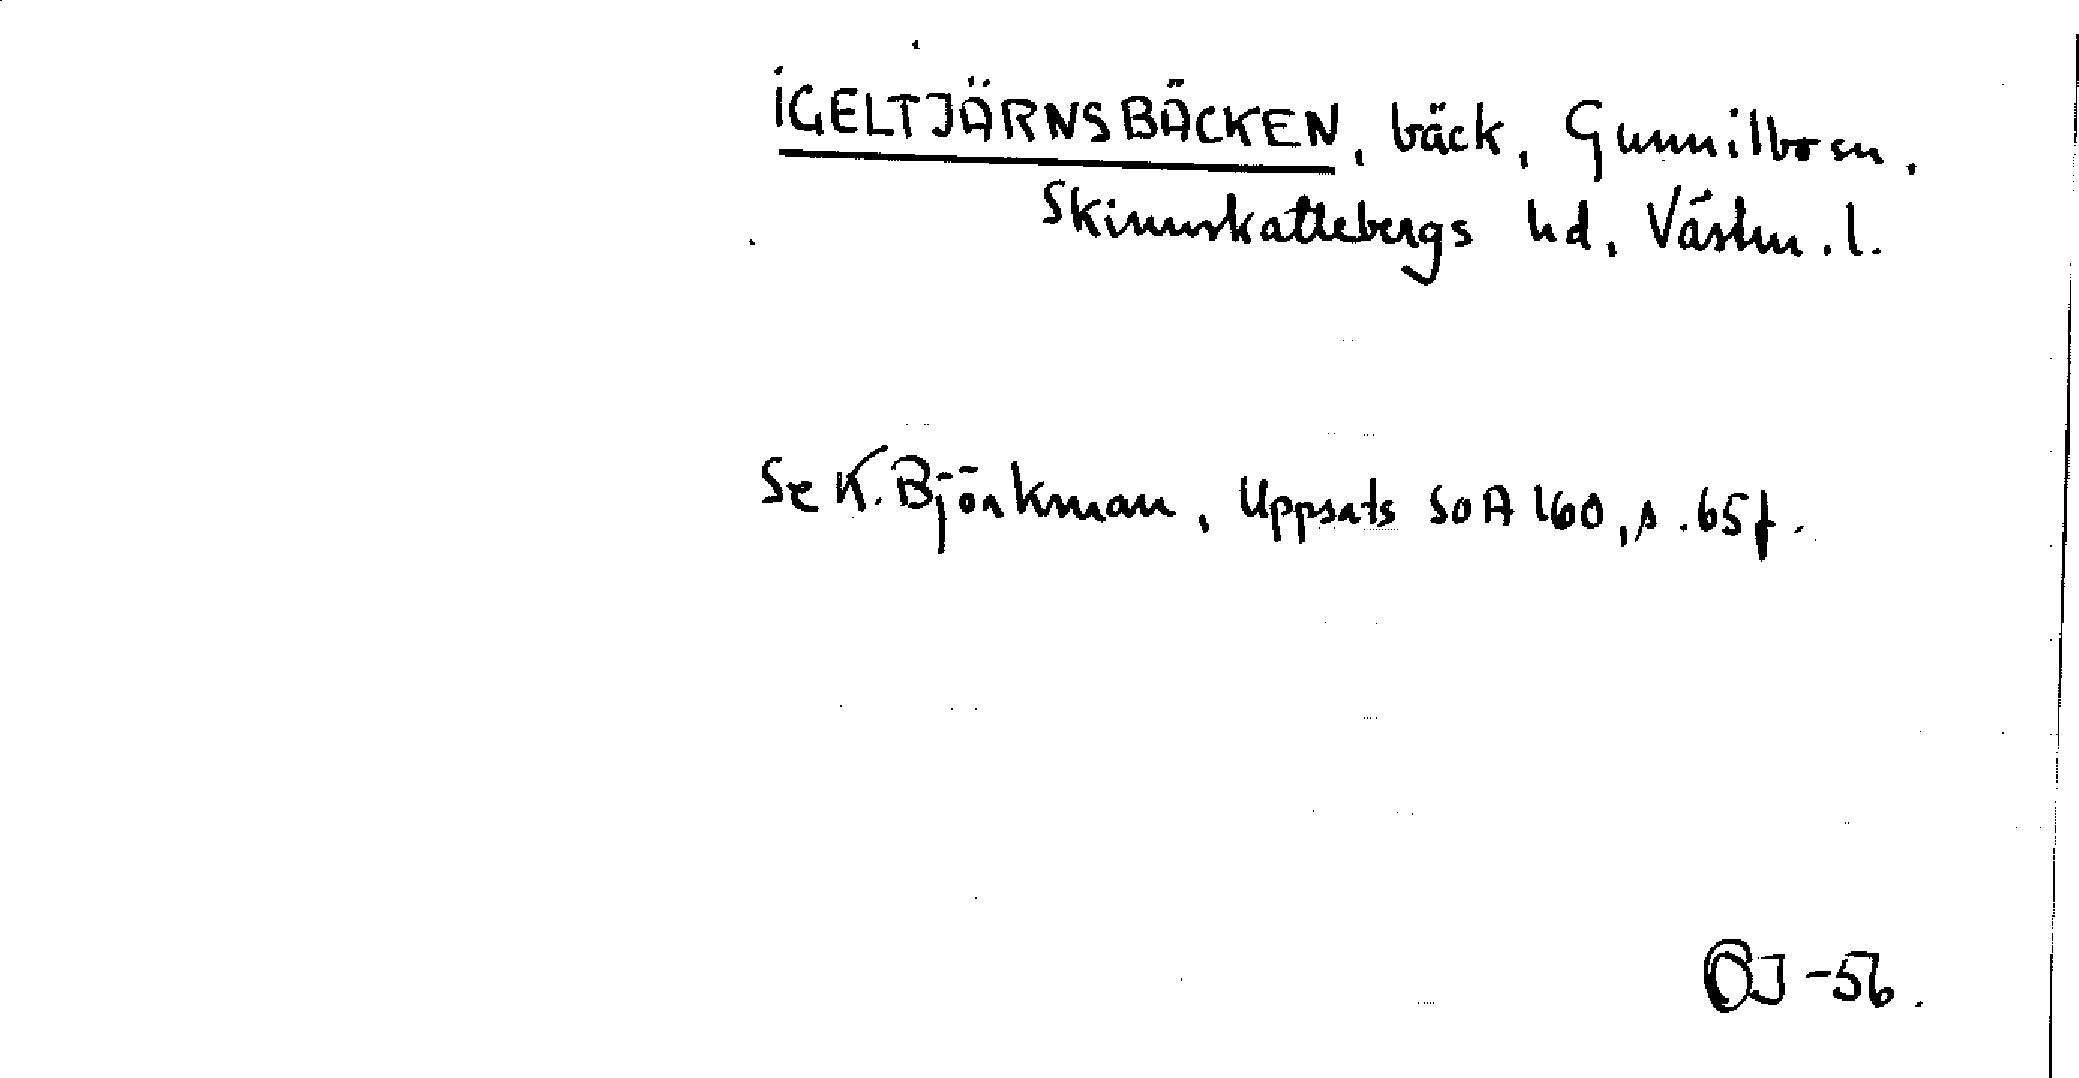 IGELTJÄRNSBÄCKEN, bäck, Gunnilbo sn,
Skinnskattebergs hd, Västm. l.
Se K. Björkman, Uppsats SOA 160, s. 65 f.
OJ -56.